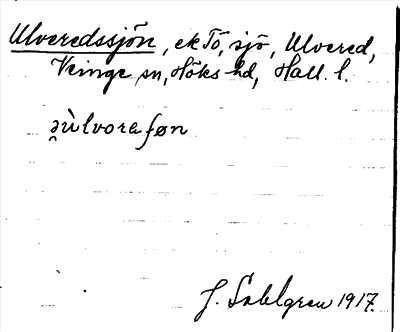 Ulveredssjön, ek Tö, sjö, Ulvered,
Veinge sn, Höks hd, Hall. l.
ùlvoraſøn
J. Sahlgren 1917.